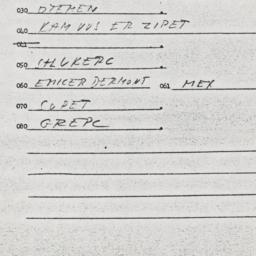 030 DIEMEN
040 KAM VUS ER ZIPET
041
050
060 EMICER DERMONT 061 MEX
070 SUPET
080 GREPC